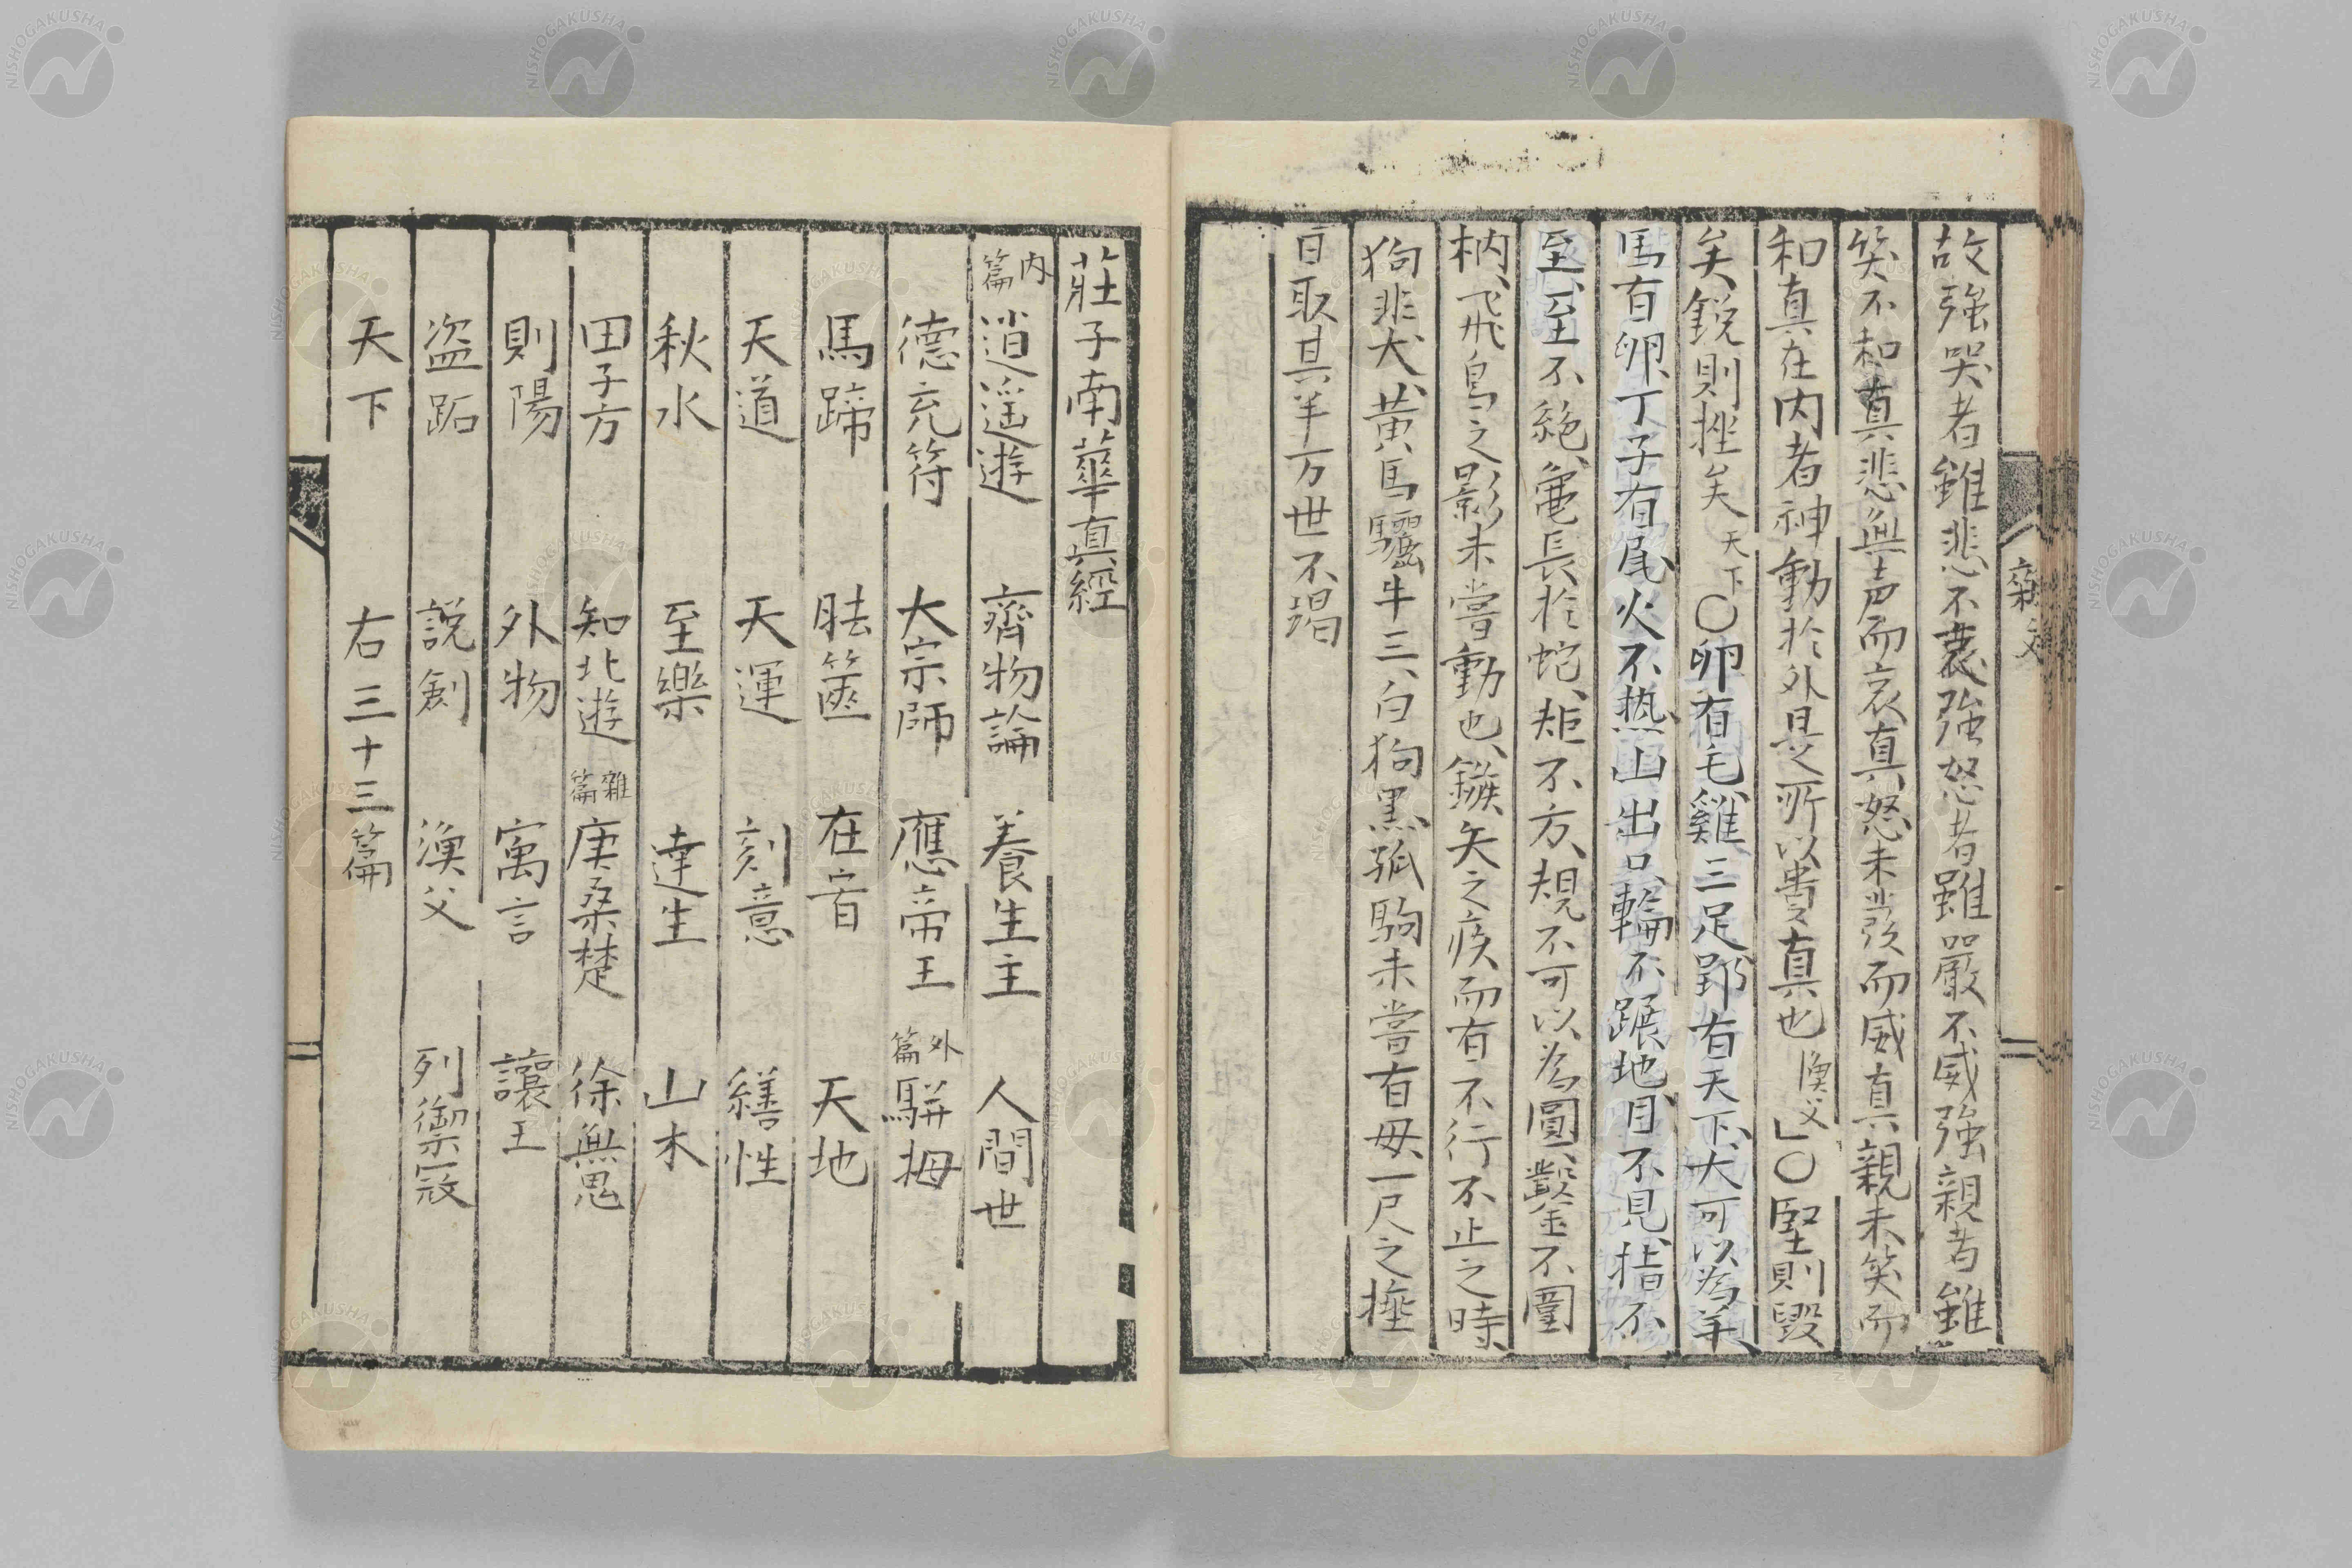 故強哭者雖悲不哀強怒者雖嚴不威強親者雖
笑不和真悲無声而哀真怒未發而威真親未笑而
和真在内者神動於外是所以貴真也漁父」〇堅則毀
矣銳則挫矣天下〇卵有毛、雞三足、郢有天下、犬可以為羊、
馬有卵、丁子有尾、火不熱、山出口、輪不蹍地、目不見、指不
至、至不絶、龜長於蛇、矩不方、規不可以為圓、鑿不圍
枘、飛鳥之影未嘗動也、鏃矢之疾而有不行不止之時、
狗非犬、黄馬驪牛三、白狗黒、孤駒未嘗有母、一尺之捶
日取其半万世不竭
雜文
莊子南華真經
内篇 逍遥遊 齊物論 養生主 人間世
德充符 大宗師 應帝王 外篇 駢拇
馬蹄 胠篋 在宥 天地
天道 天運 刻意 繕性
秋水 至樂 達生 山木
田子方 知北遊 雜篇 庚桑楚 徐無鬼
則陽 外物 寓言 讓王
盗跖 説劍 漁父 列禦寇
天下 右三十三篇
NISHOGAKUSHA